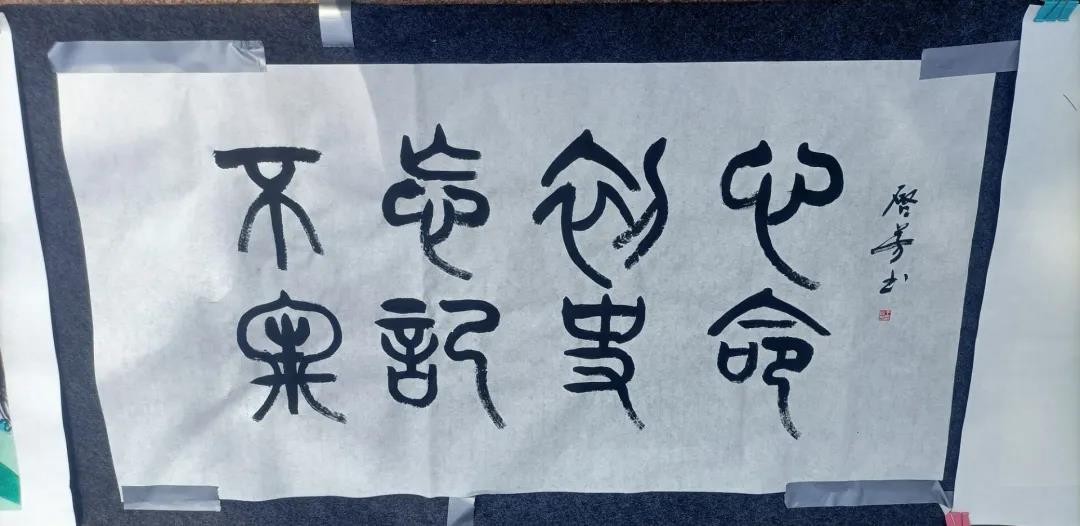 不忘初心
牢記使命
啓芳书